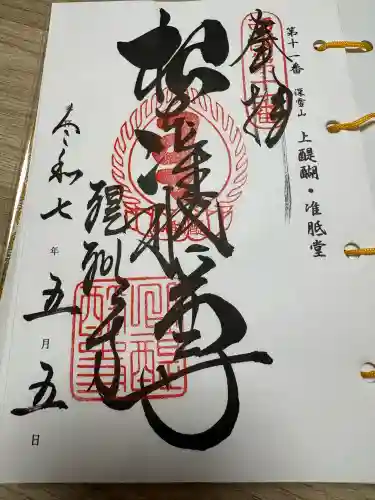 第十一番 深雪山 上醍醐・准胝堂
奉拝
根本准胝尊
醍醐寺
令和七年五月五日